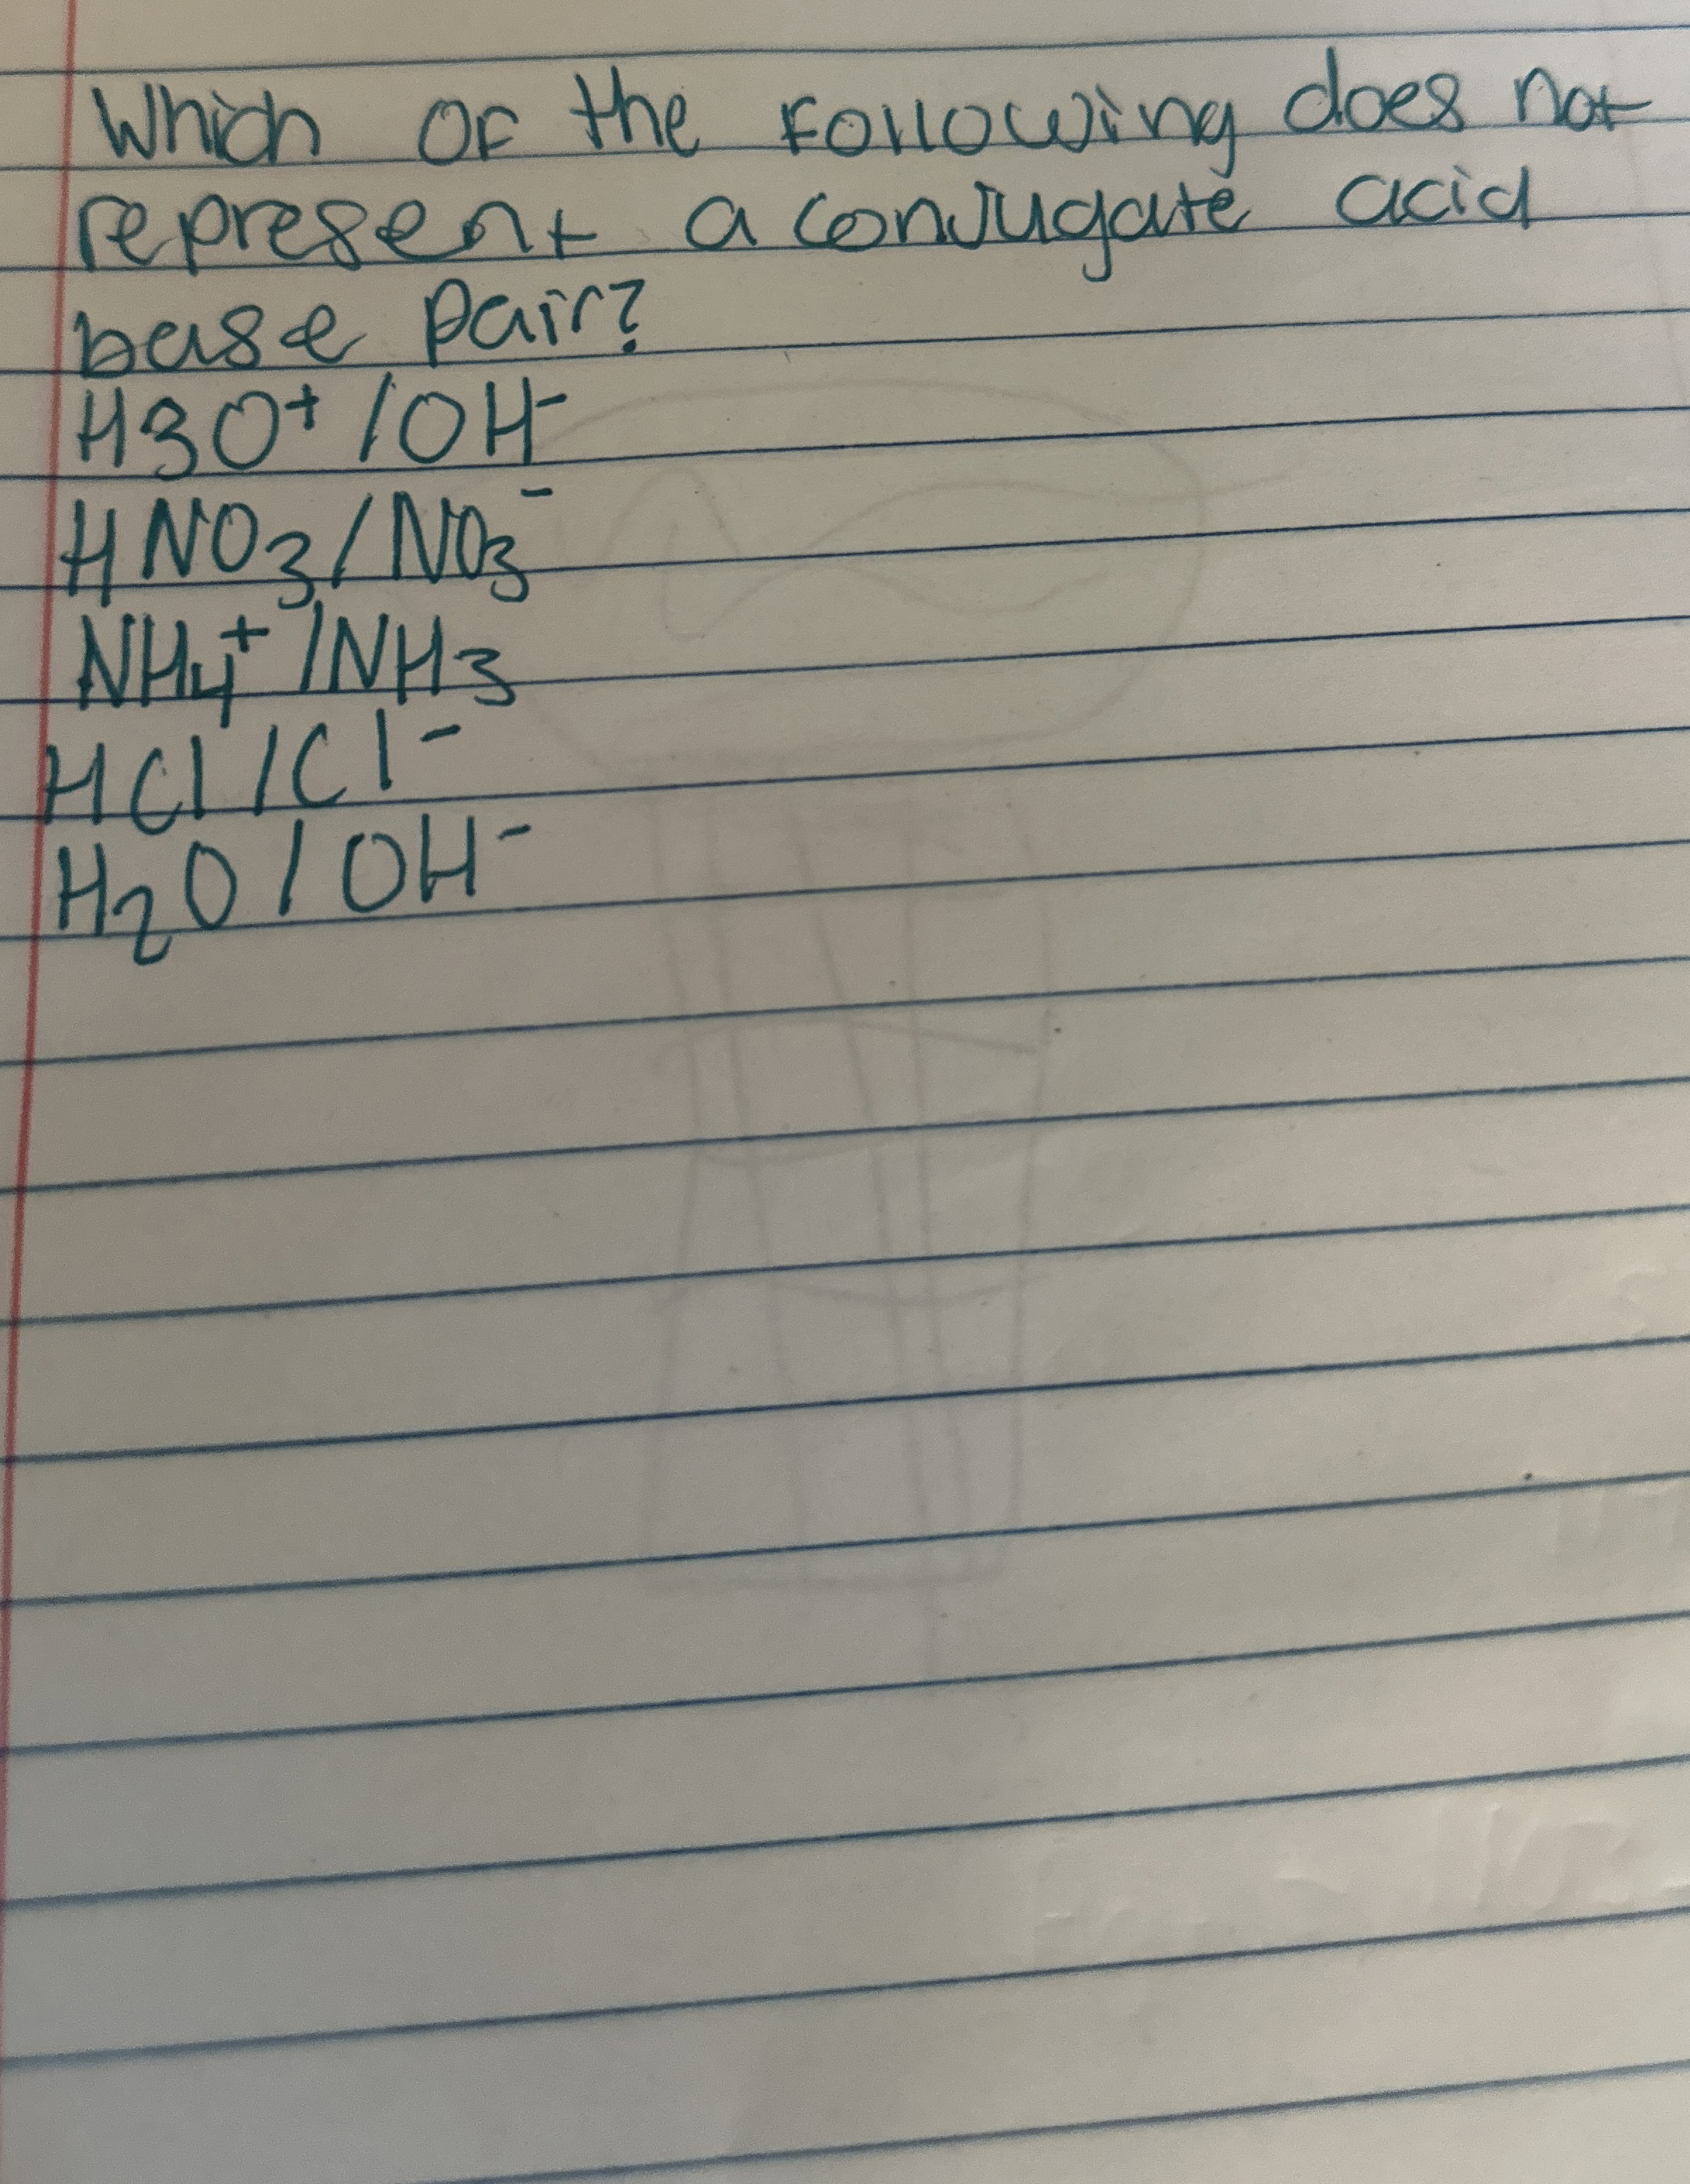 Which of the following does not
represent a conjugate acid
base pair?
H3O⁺ / OH⁻
HNO₃ / NO₃⁻
NH₄⁺ / NH₃
HCl / Cl⁻
H₂O / OH⁻